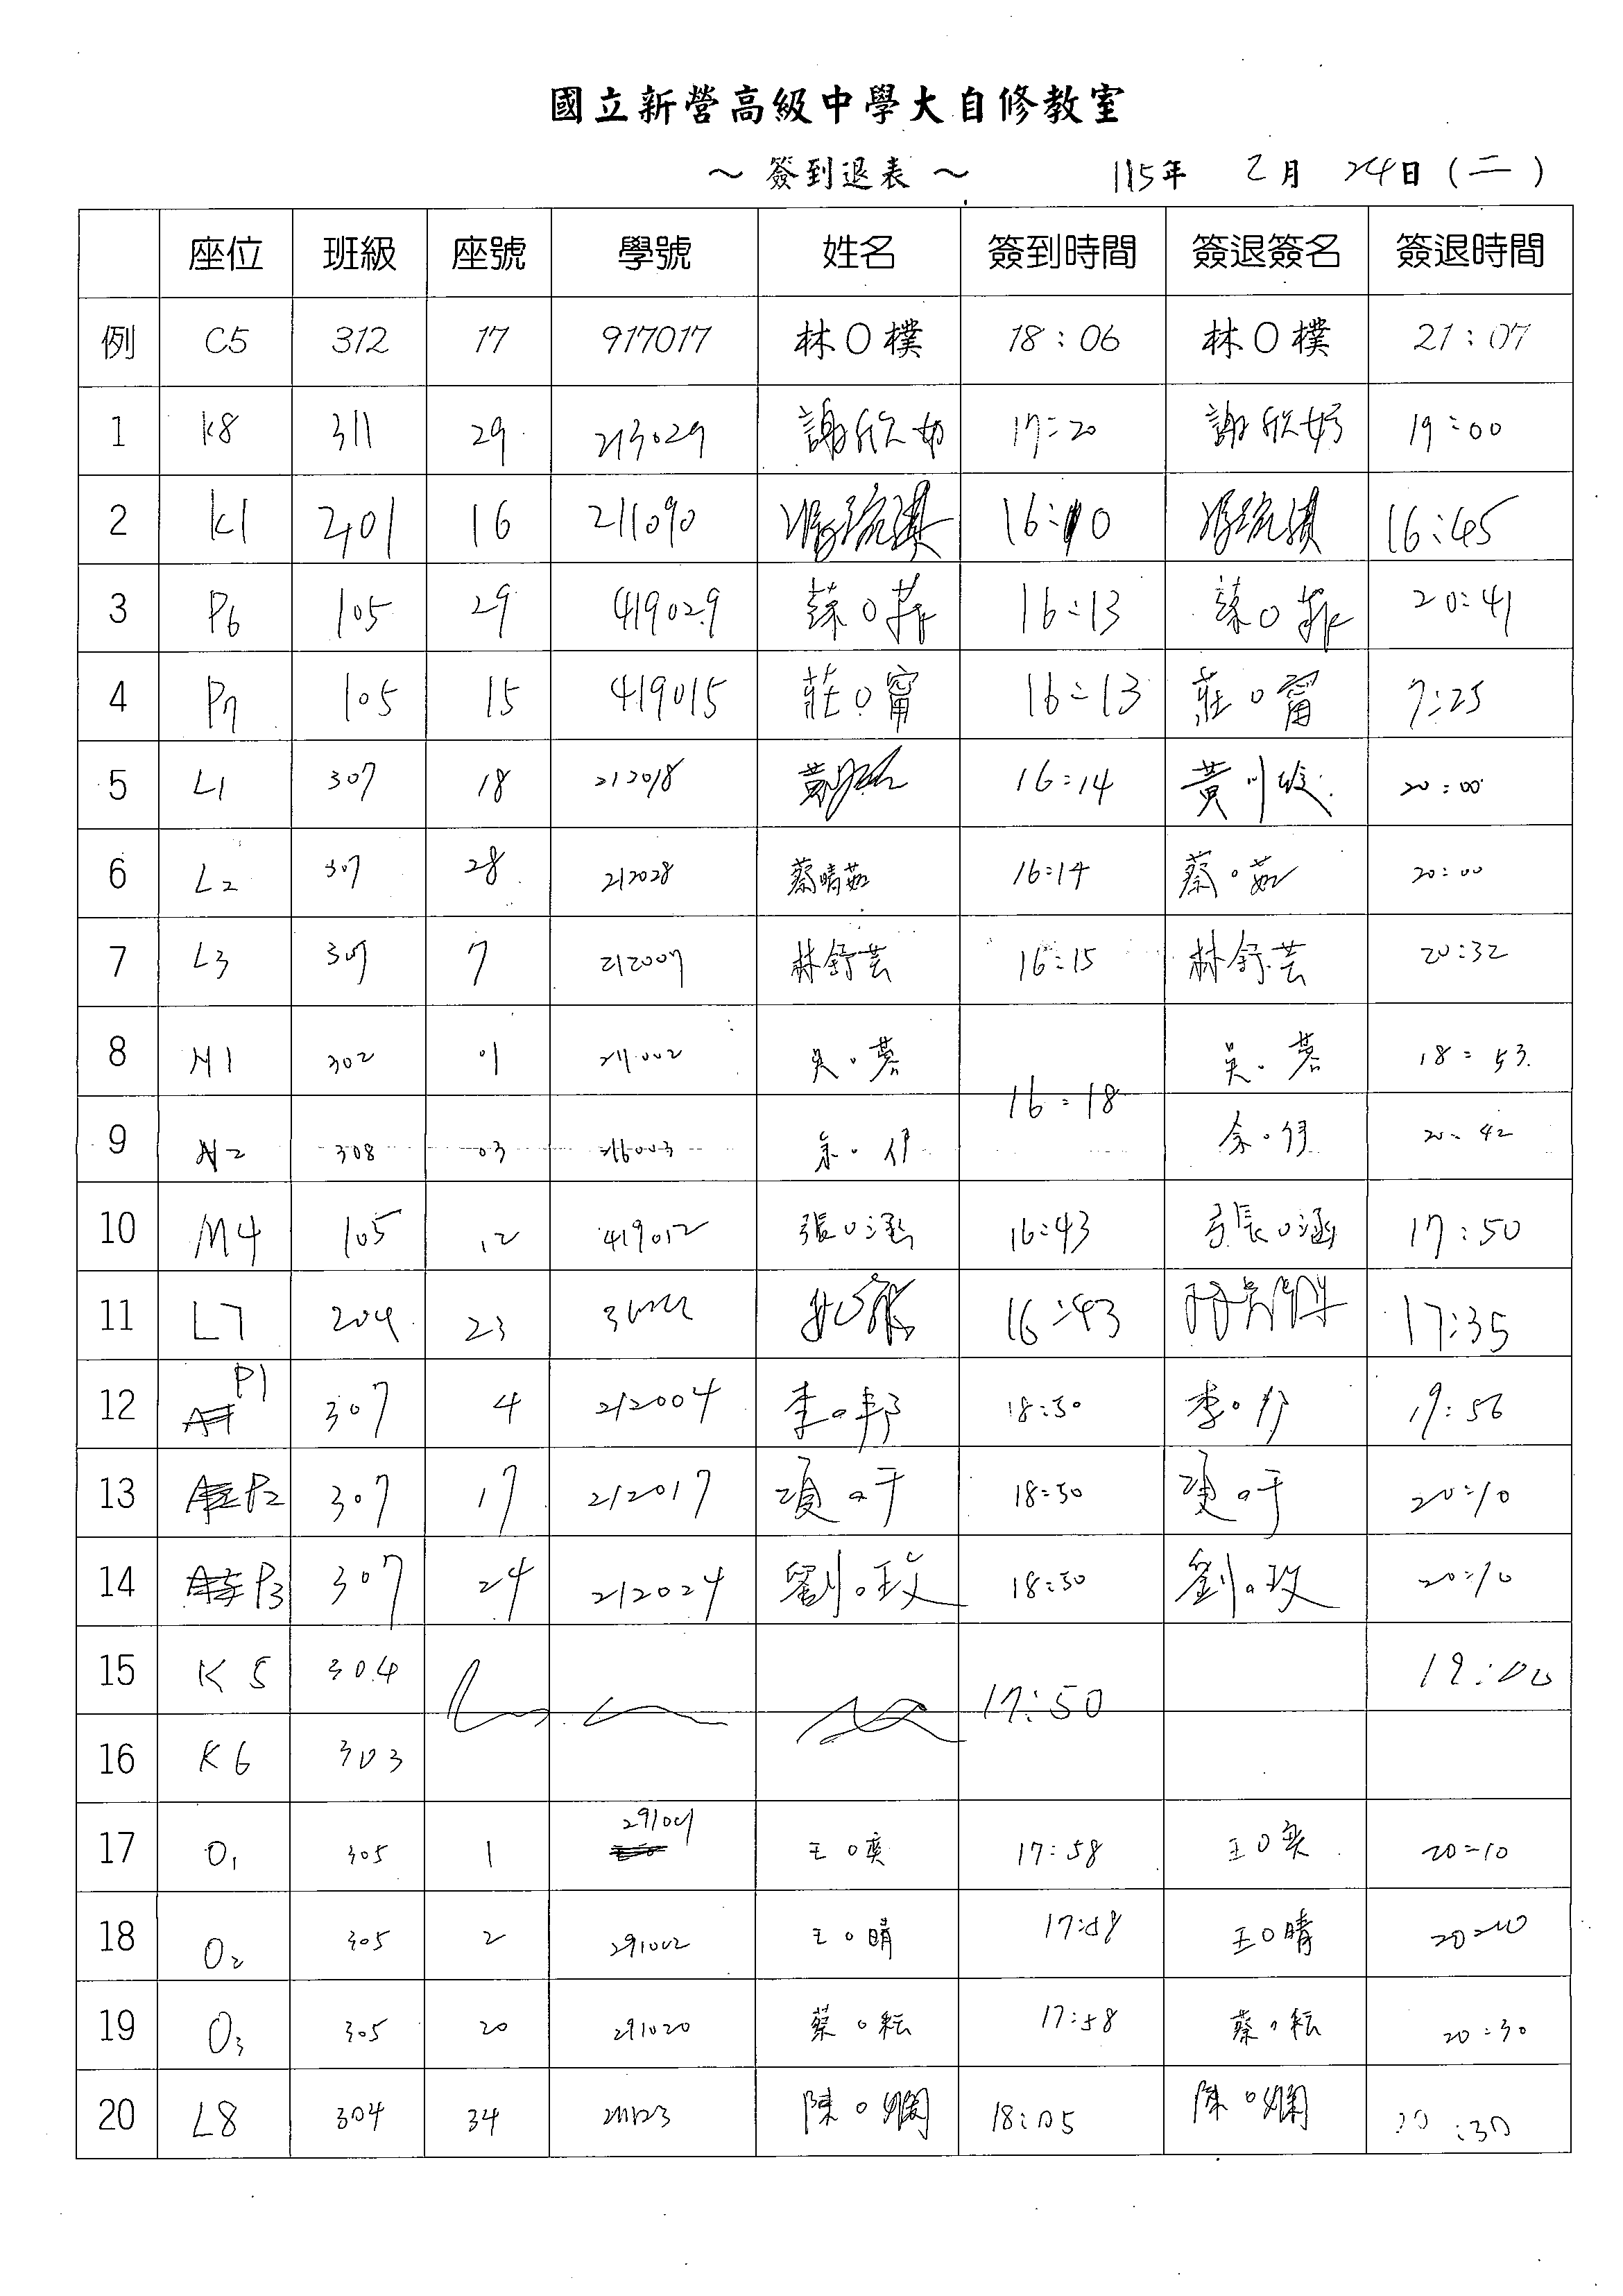 國立新營高級中學大自修教室
～ 簽到退表 ～ 115年 2月 24日 (二)
座位 班級 座號 學號 姓名 簽到時間 簽退簽名 簽退時間
例 C5 312 17 917017 林○樸 18:06 林○樸 21:07
1 K8 311 29 213029 謝欣妤 17:20 謝欣妤 19:00
2 K1 201 16 211090 16:10 16:45
3 P6 105 29 419029 蘇○菲 16:13 蘇○菲 20:41
4 P7 105 15 419015 莊○甯 16:13 莊○甯 7:25
5 L1 307 18 212018 黃 16:14 黃 20:00
6 L2 307 28 212028 蔡晴茹 16:14 蔡○茹 20:00
7 L3 307 7 212007 林舒芸 16:15 林舒芸 20:32
8 N1 302 01 吳○ 吳○ 18:53
16:18
9 N2 308 03 216003 余○ 余○ 20:42
10 M4 105 12 419012 張○涵 16:43 張○涵 17:50
11 L7 204 23 16:43 17:35
12 P1 307 4 212004 李○ 18:30 李○ 19:56
13 P2 307 17 212017 項○于 18:30 項○于 20:10
14 P3 307 24 212024 劉○玟 18:30 劉○玟 20:10
15 K5 304 17:50 19:00
16 K6 303
17 O1 305 1 291001 王○奕 17:58 王○奕 20:10
18 O2 305 2 291002 王○晴 17:58 王○晴 20:10
19 O3 305 20 291020 蔡○耘 17:58 蔡○耘 20:30
20 L8 304 34 陳○嫻 18:05 陳○嫻 :30